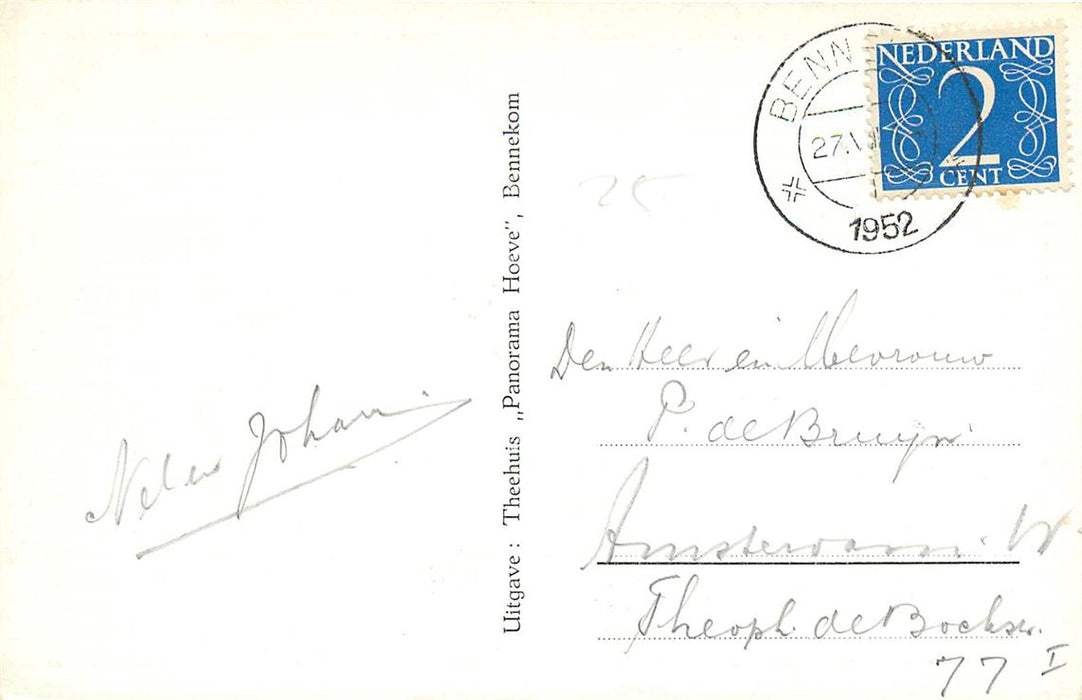 Nel en Johan.
Uitgave : Theehuis „Panorama Hoeve”, Bennekom
25
BENN
27.V
1952
NEDERLAND
2
CENT
Den Heer en Mevrouw
P. de Bruyn
Amsterdam. W.
Theoph. de Bockstr.
77 I